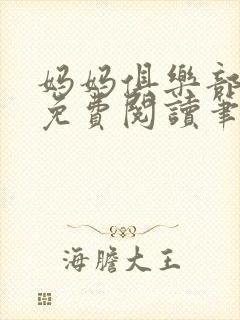 妈妈俱樂部
免費閱讀筆
海膽大王